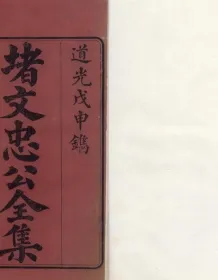 道光戊申鐫
堵文忠公全集